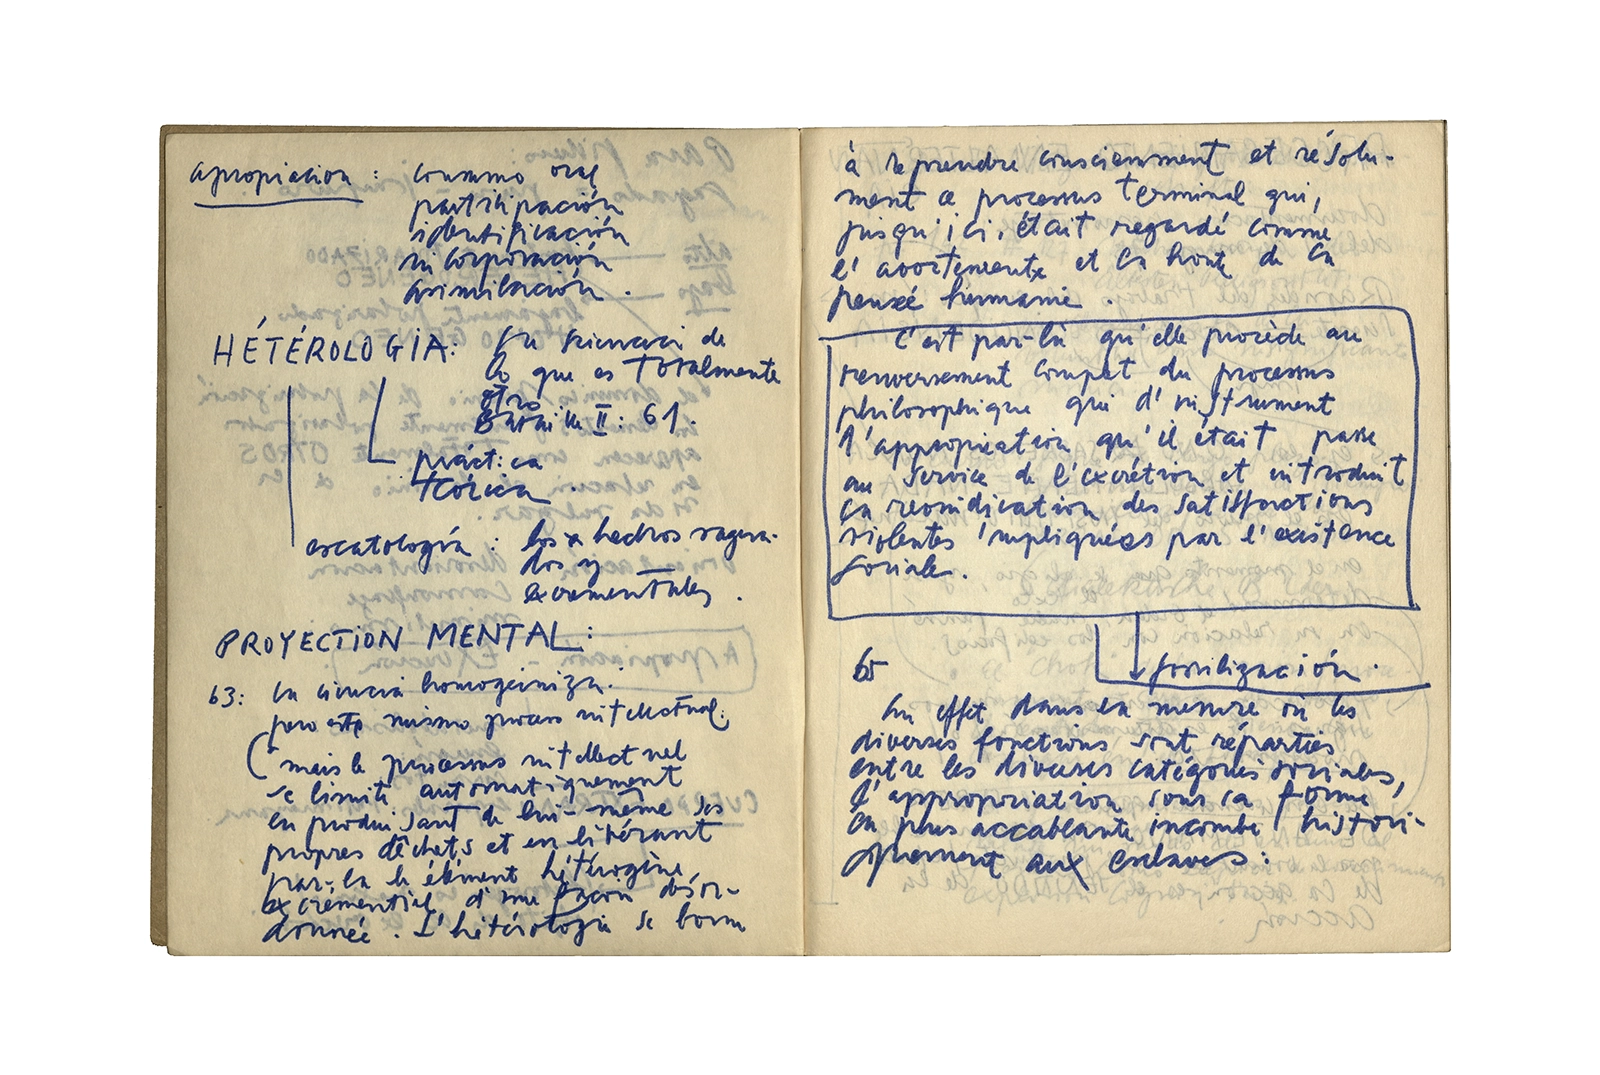 apropiacion : consumo oral
participación
identificación
incorporación
asimilación .
HÉTÉROLOGIA: La sciencia de
lo que es totalmente
otro
Bataille II : 61.
práctica
teórica .
escatología : los x hechos sagra-
dos y
excrementales .
PROYECTION MENTAL :
63: la ciencia homogeiniza.
pero este mismo proceso intellectual:
( mais le processus intellectuel
se limite automatiquement
en produisant de lui-même ses
propres déchets et en libérant
par-la le élément hétérogène
excrémentiel d'une façon désor-
donnée. L'hétérologie se borne
à reprendre consciemment et résolu-
ment ce processus terminal qui,
jusqu'ici, était regardé comme
l'avortement et la honte de la
pensée humaine .
C'est par-là qu'elle procède au
renversement complet du processus
philosophique qui d'instrument
l'appropriation qu'il était passe
au service de l'excrétion et introduit
la revindication des satisfactions
violentes impliquées par l'existence
sociale.
fosilización .
65
En effet dans la mesure où les
diverses fonctions sont réparties
entre les diverses catégories sociales,
l'appropriation sous sa forme
la plus accablante incombe histori-
quement aux esclaves :